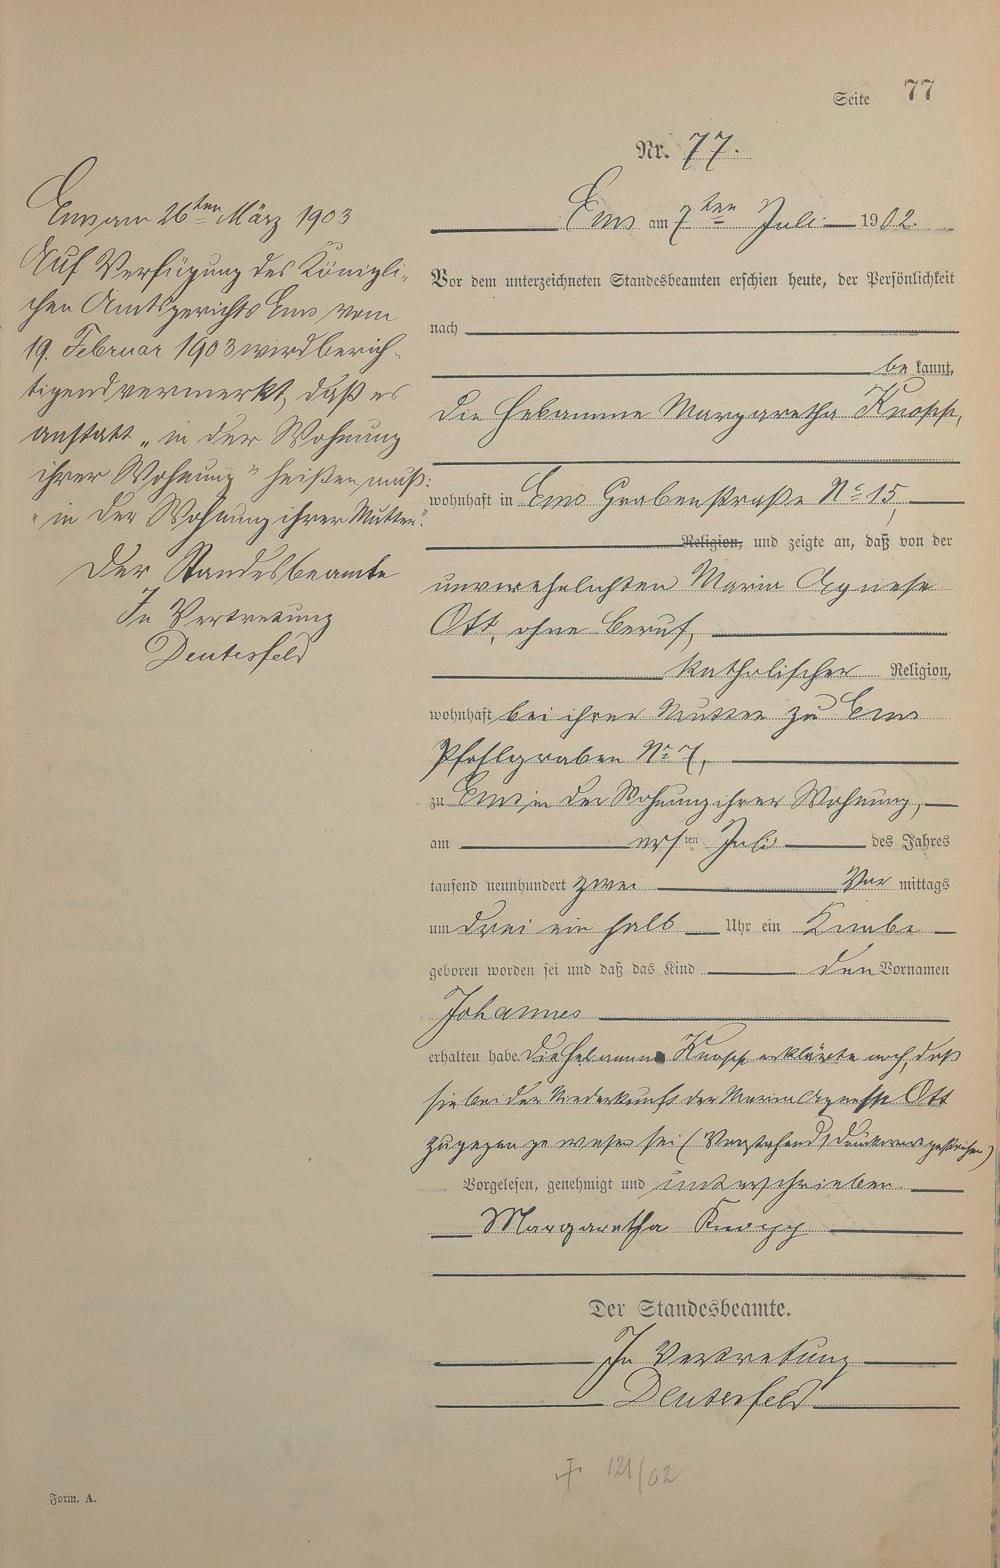 Seite 77
Nr. 77.
Ems am 7ten Juli 1902.
Vor dem unterzeichneten Standesbeamten erschien heute, der Persönlichkeit
nach
be kannt,
die Hebamme Margaretha Knopp,
wohnhaft in Ems Grabenstraße No 15,
Religion, und zeigte an, daß von der
unverehelichten Maria Agnese
Ott, ohne Beruf,
katholischer Religion,
wohnhaft bei ihrer Mutter zu Ems
Pfahlgraben No 7,
zu Ems in der Wohnung ihrer Wohnung,
am ersten Juli des Jahres
tausend neunhundert zwei Vor mittags
um drei ein halb Uhr ein Knabe
geboren worden sei und daß das Kind den Vornamen
Johannes
erhalten habe. Die Hebamme Knopp erklärte noch, daß
sie bei der Niederkunft der Maria Agnese Ott
zugegen gewesen sei (Vorstehend 1 Druckwort gestrichen)
Vorgelesen, genehmigt und unterschrieben.
Margaretha Knopp
Der Standesbeamte.
In Vertretung
Deuterfeld
Ems am 26ten März 1903
Auf Verfügung des Königli-
chen Amtsgerichts Ems vom
19. Februar 1903 wird berich-
tigend vermerkt, daß es
anstatt „in der Wohnung
ihrer Wohnung" heißen muß:
„in der Wohnung ihrer Mutter".
Der Standesbeamte
In Vertretung
Deuterfeld
+ 121/02
Form. A.